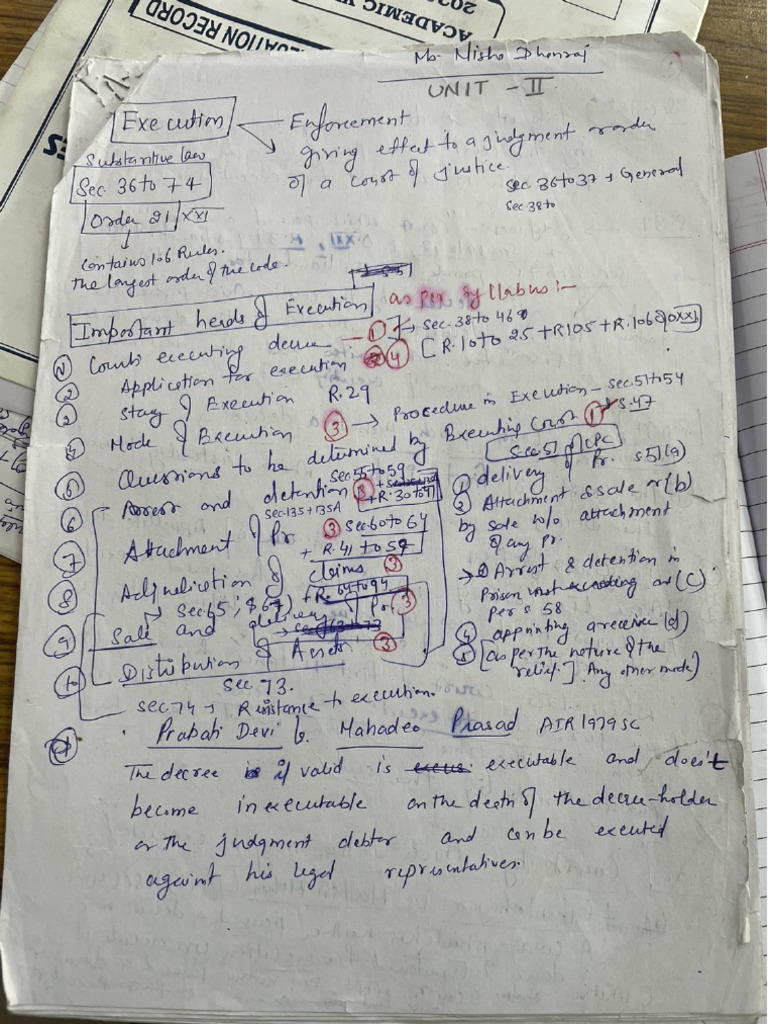 ACADEMIC
EVALUATION RECORD
Ms. Nisha Dhanraj
UNIT - II
Execution
Enforcement
giving effect to a judgment or order
of a court of justice.
Substantive law
Sec. 36 to 74
Order 21 XXI
Sec 36 to 37 → General
Sec 38 to
Contains 106 Rules.
The longest order of the code.
Important heads of Execution as per syllabus :-
① Courts executing decree — ① → Sec. 38 to 46
② Application for execution ④ [R. 10 to 25 + R 105 + R. 106 O XXI]
③ Stay of Execution R. 29
④ Mode of Execution ③ → Procedure in Execution - Sec. 51 to 54
⑤ Questions to be determined by Executing Court ① S. 47
⑥ Arrest and detention Sec 55 to 59 + R. 30 to 41
Sec 135 + 135A
⑦ Attachment of Pr. ③ Sec 60 to 64
+ R. 41 to 57
⑧ Adjudication of claims
→ Sec. 65; + R. 64 to 94
⑨ Sale and delivery of Pr ③
⑩ Distribution of Assets ③
Sec 73.
Sec 74 → Resistance to execution.
Sec. 51 of CPC
① delivery of Pr. s 51 (a)
② Attachment & sale or (b)
by sale w/o attachment
of any pr.
→ ③ Arrest & detention in
Prison not exceeding as (C)
per s 58
④ appointing a receiver (d)
⑤ [as per the nature of the
relief.] Any other mode)
Prabati Devi v. Mahadeo Prasad AIR 1979 SC
The decree if valid is executable and does't
become inexecutable on the death of the decree-holder
or the judgment debtor and can be executed
against his legal representatives.